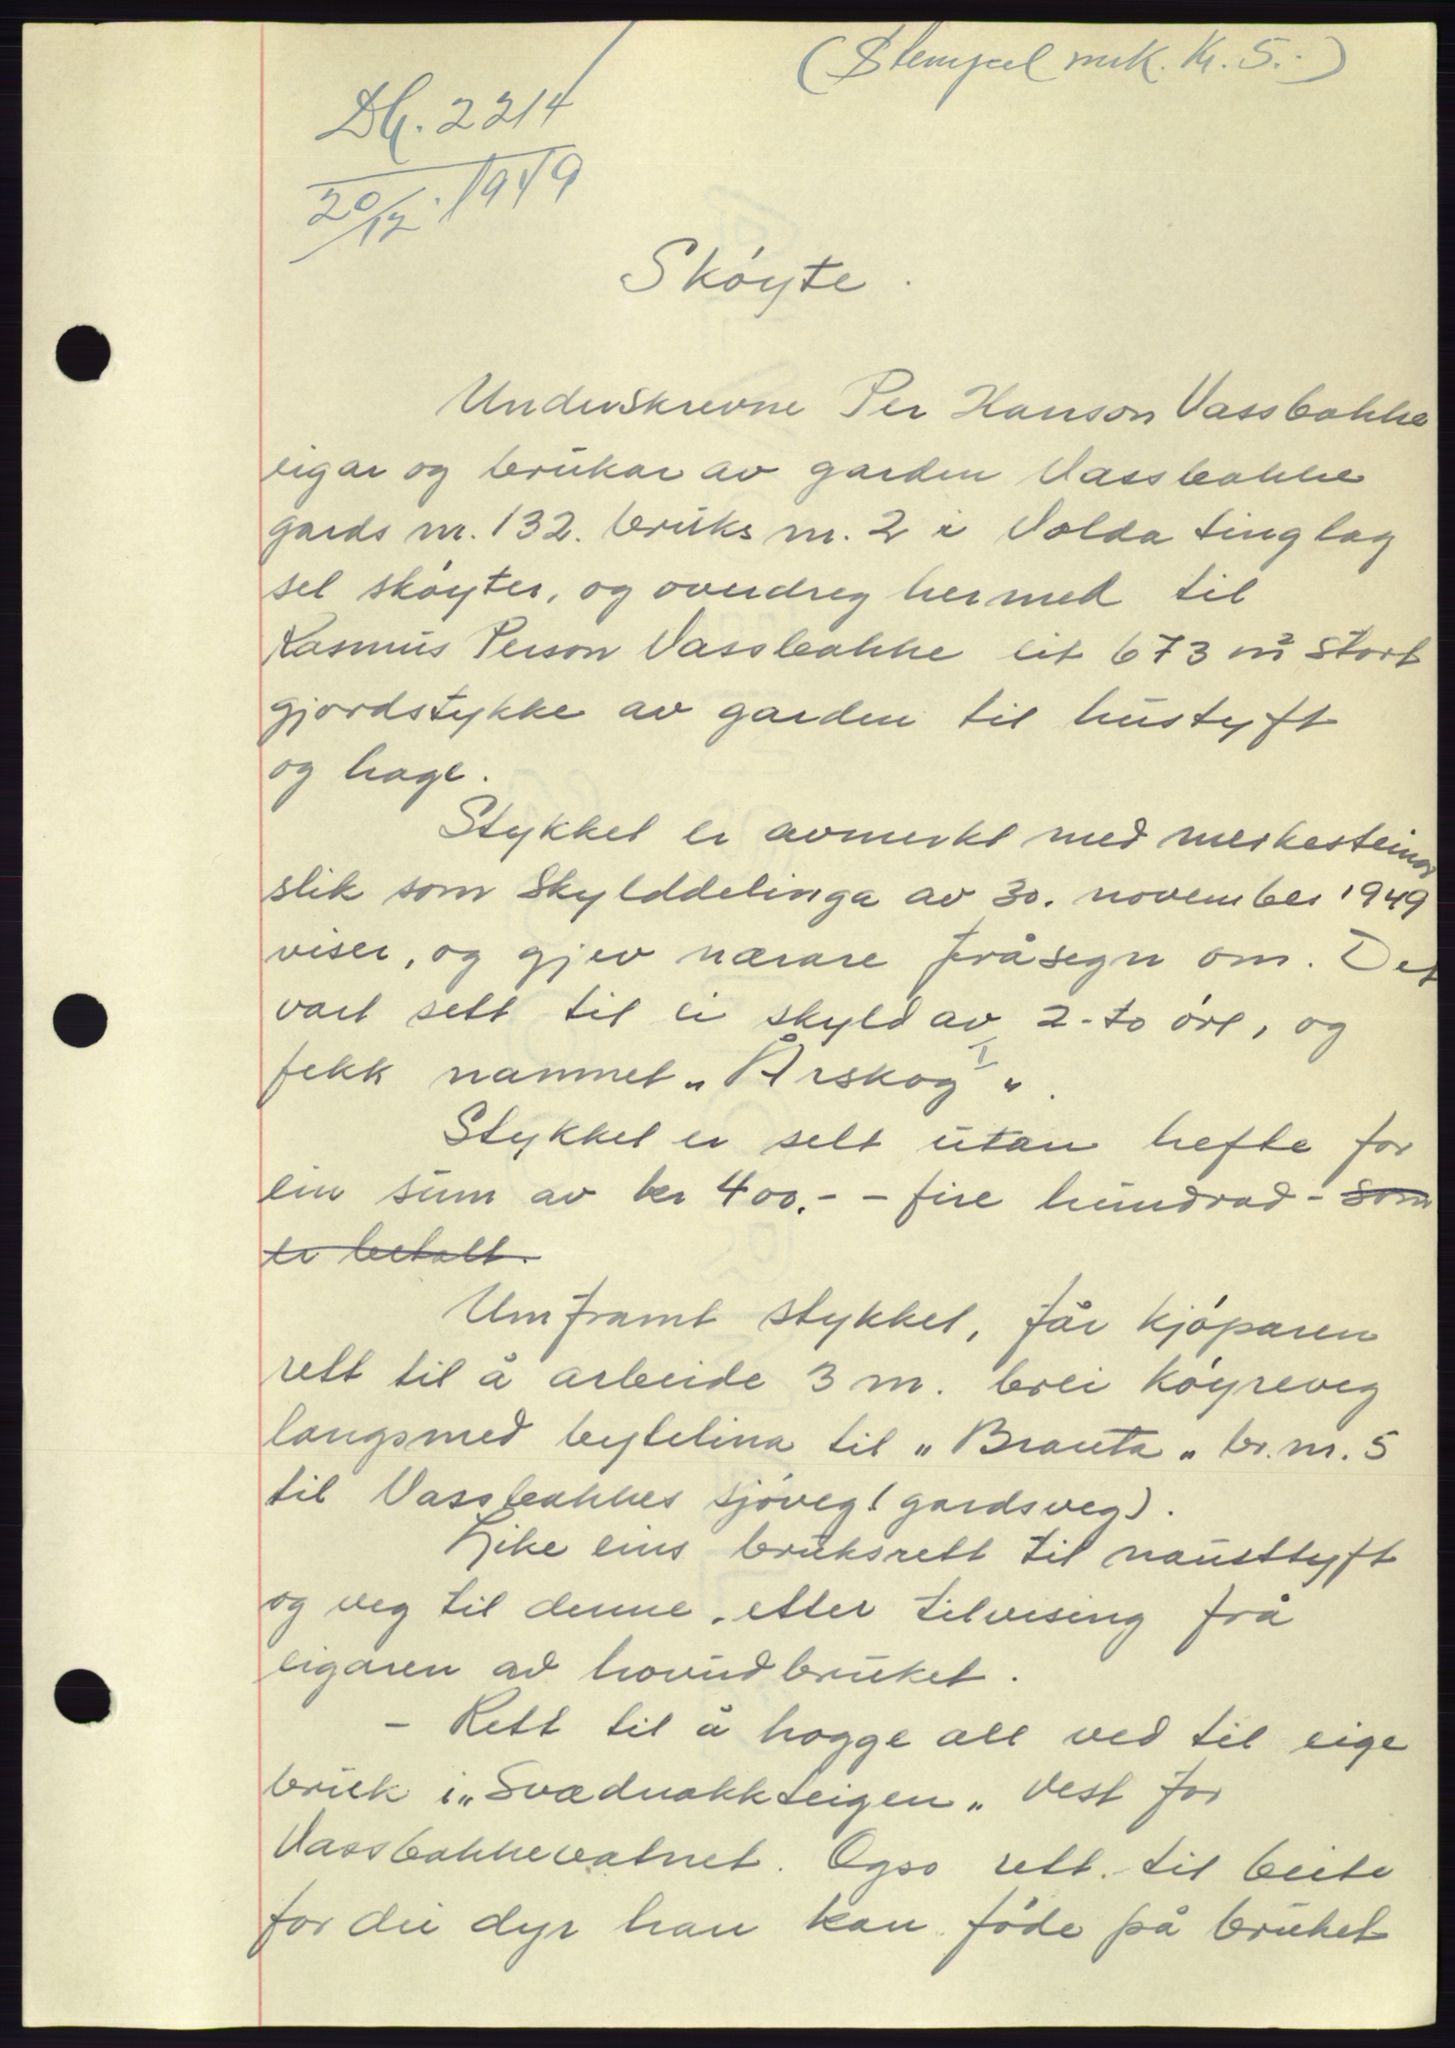 (Stempel mrk. Kr. 5.-)
Db. 2214
20/12. 1949
Skóyte.
Underskrevne Per Hanson Vassbakke
eigar og brukar av garden Vassbakke
gards nr. 132. bruks nr. 2 i Volda tinglag
sel skóyter, og overdreg hermed til
Rasmus Person Vassbakke eit 673 m² stort
gjordstykke av garden til hustyft
og hage.
Stykket er avmerkt med merkesteinar
slik som Skylddelinga av 30. november 1949
viser, og gjev nærare fråsegn om. Det
vart sett til ei skyld av 2-to óre, og
fekk namnet „Årskog I".
Stykket er selt utan hefte for
ein sum av kr 400.- - fire hundrad - som
er betalt.
Umframt stykket, får kjóparen
rett til å arbeide 3 m. brei kóyreveg
langsmed bytelina til „Brauta" br. nr. 5
til Vassbakkes sjóveg (gardsveg).
Like eins bruksrett til nausttyft
og veg til denne, etter tilvising frå
eigaren av hovudbruket.
- Rett til å hogge all ved til eige
bruk i „Svadnakkteigen" vest for
Vassbakkevatnet. Ogso rett til beite
for dei dyr han kan fóde på bruket